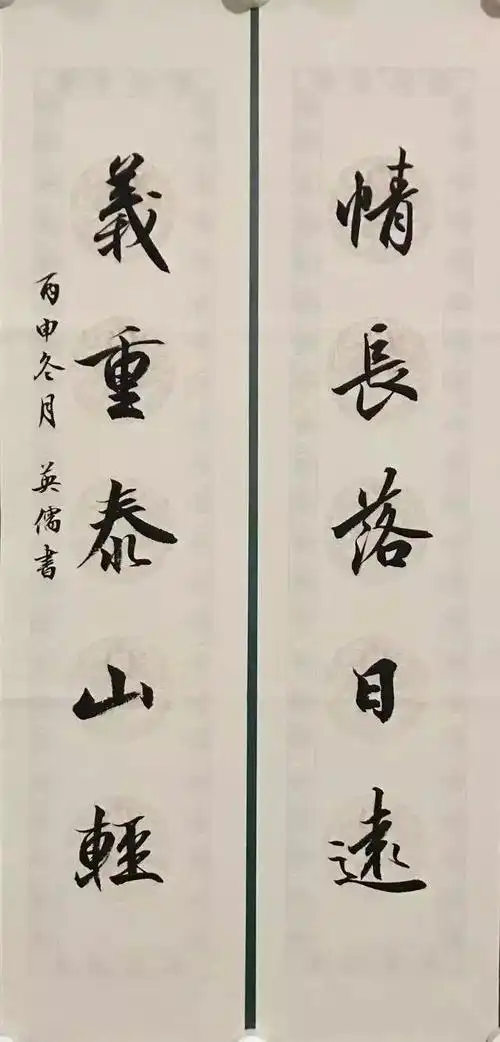 情長落日遠
義重泰山輕
丙申冬月 英儒書